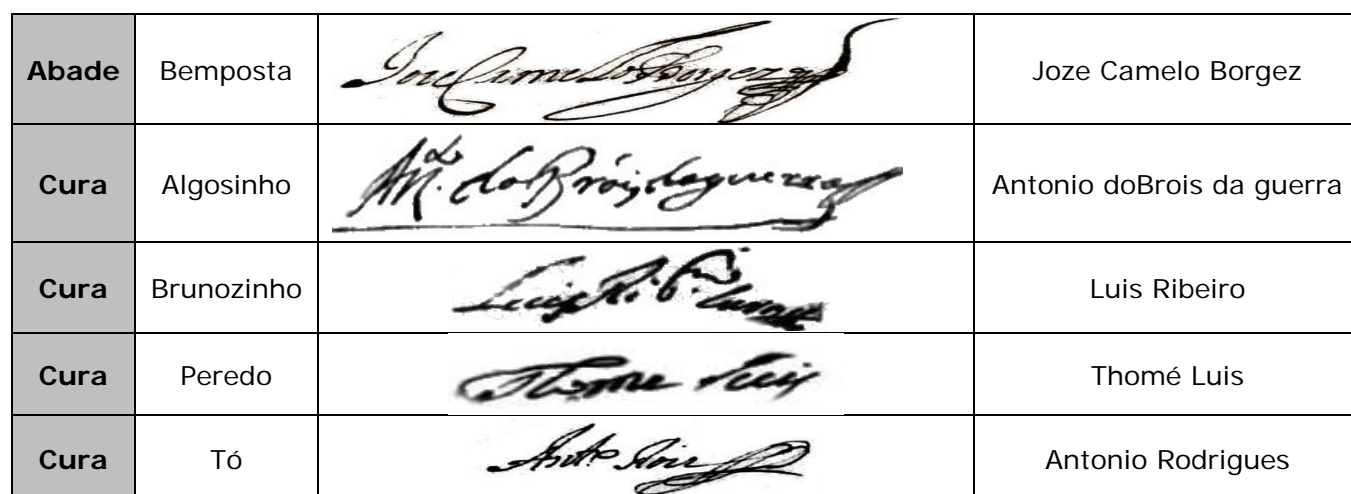 Abade Bemposta Joze Camelo Borgez Joze Camelo Borgez
Cura Algosinho do Bróis da guerra Antonio doBrois da guerra
Cura Brunozinho Luis Ribº Cura Luis Ribeiro
Cura Peredo Thome Luis Thomé Luis
Cura Tó Antº Roiz Antonio Rodrigues